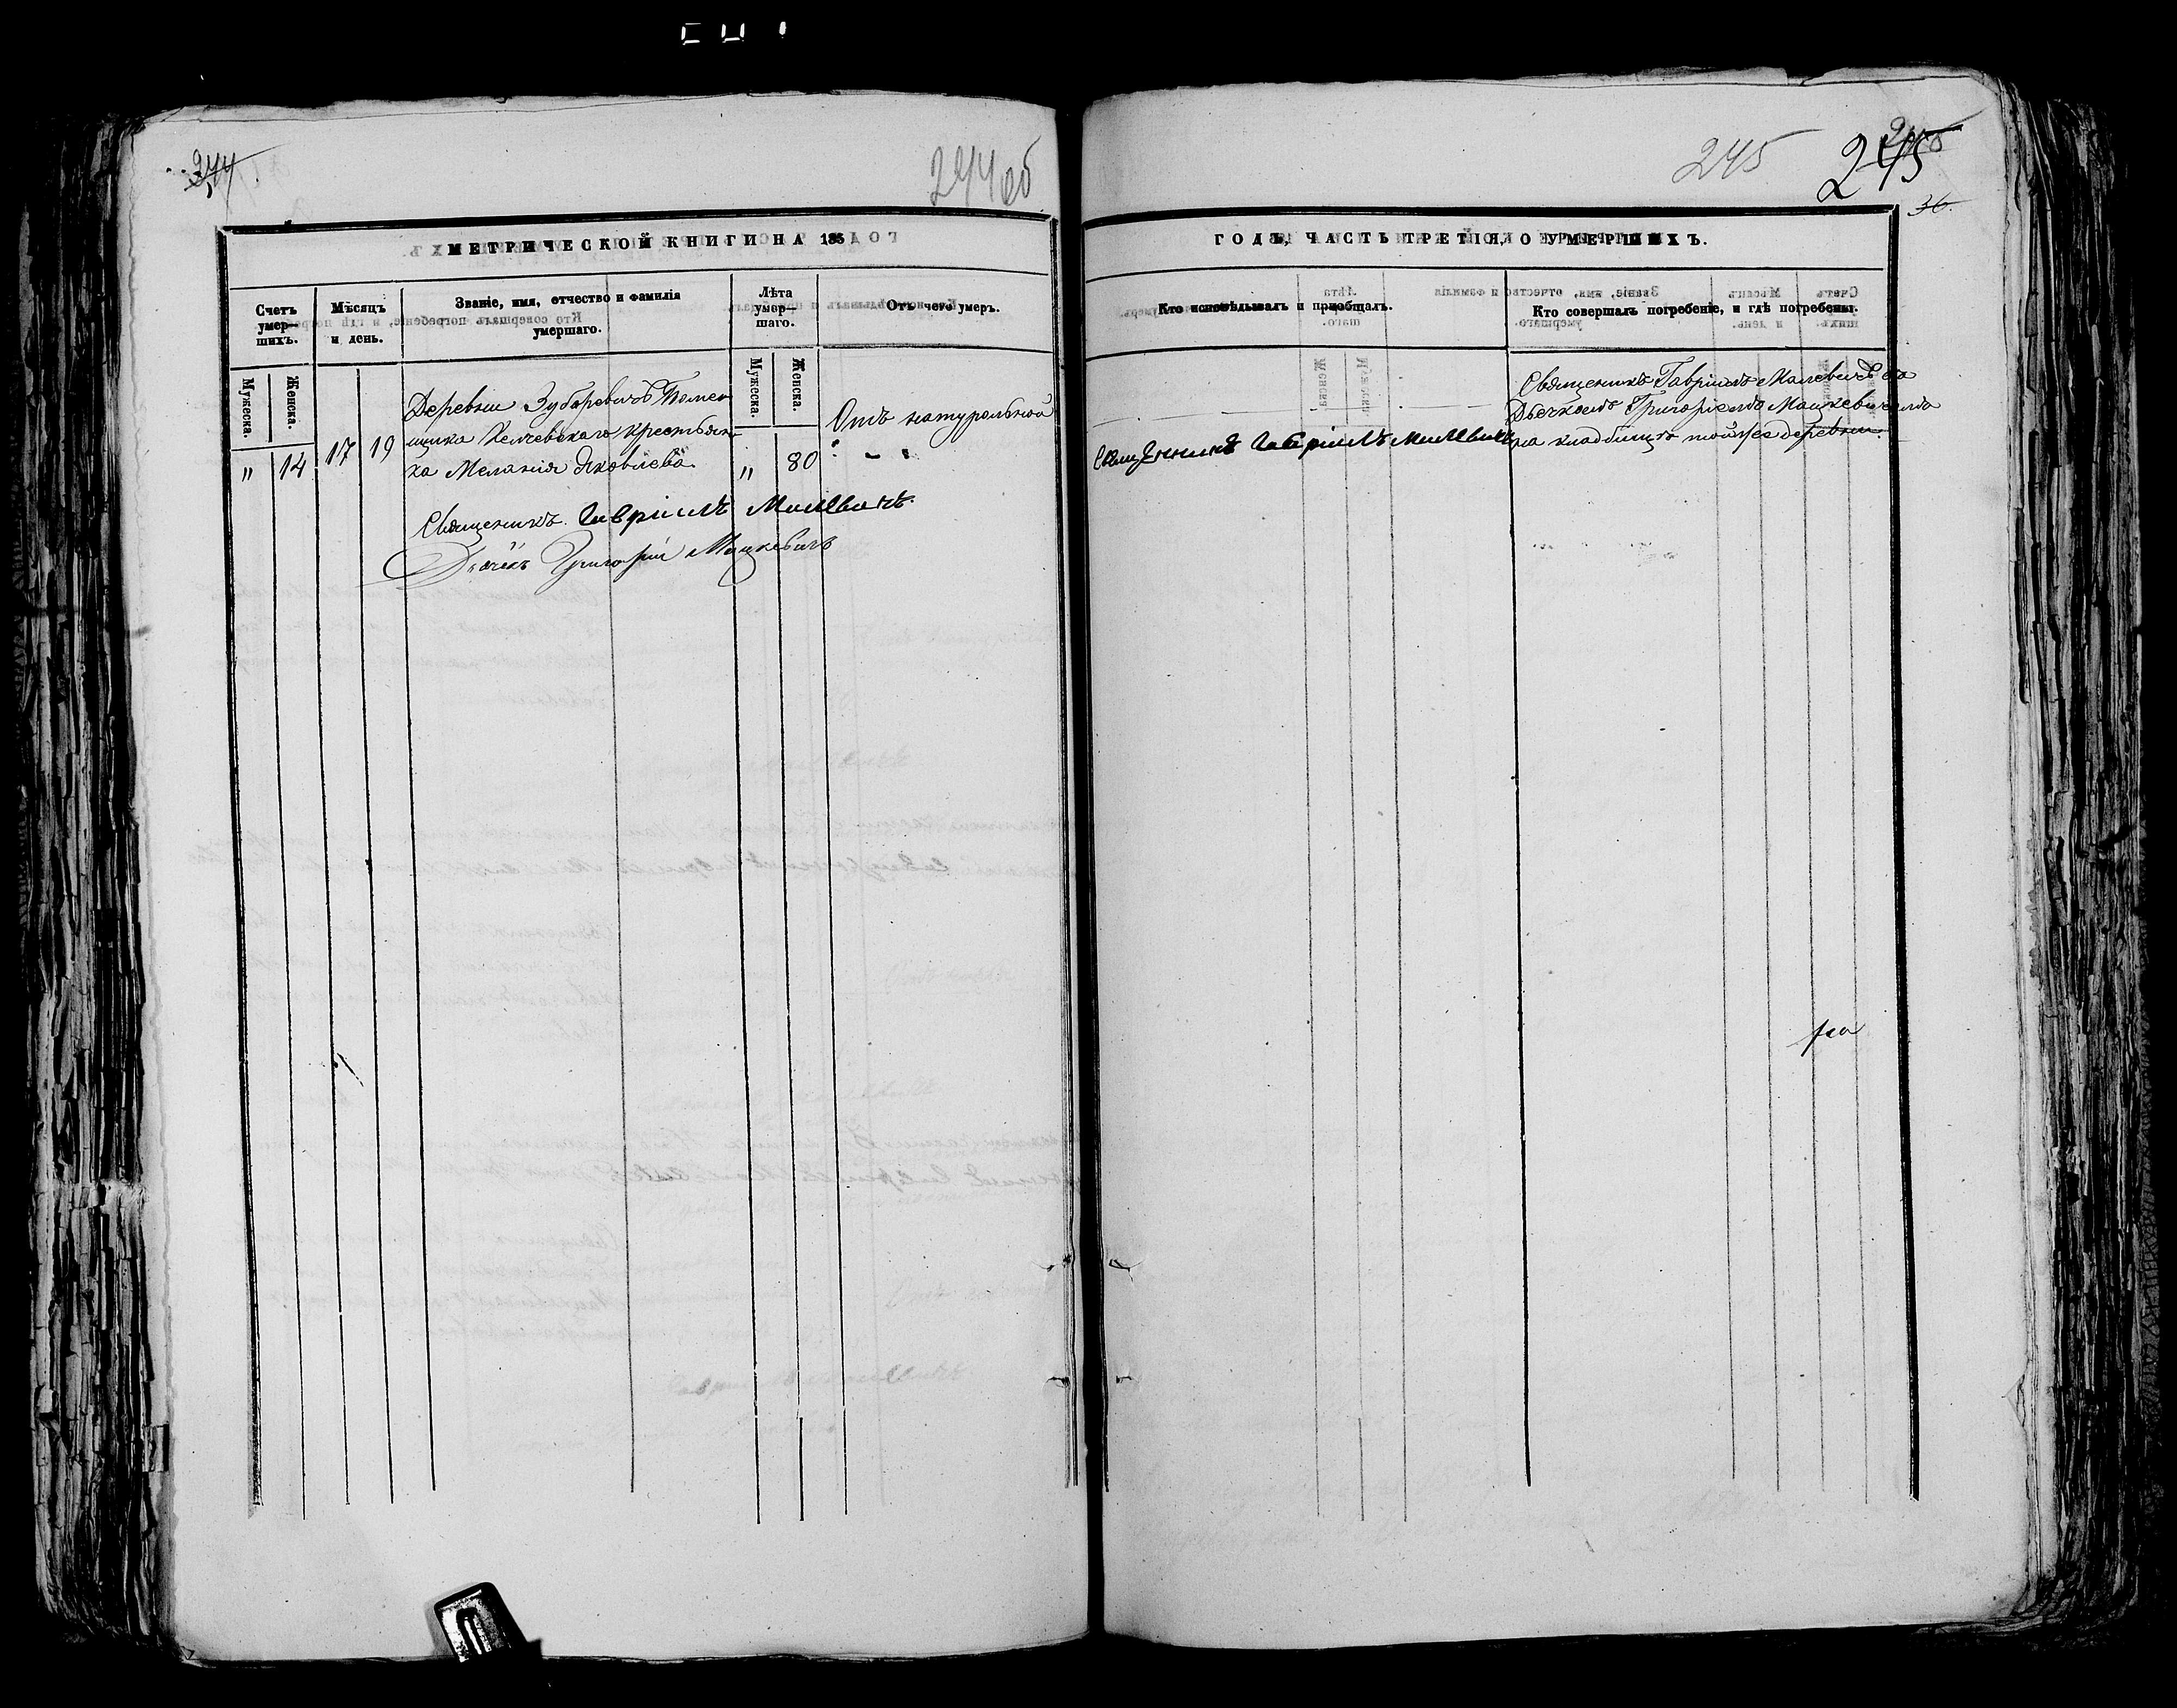 244
244 об
245
245
36.
МЕТРИЧЕСКОЙ КНИГИ НА 185
ГОДЪ, ЧАСТЬ ТРЕТІЯ, О УМЕРШИХЪ.
Счетъ умер— шихъ.
Мѣсяцъ и день.
Званіе, имя, отчество и фамилія умершаго.
Лѣта умер— шаго.
Отъ чего умеръ.
Кто исповѣдывалъ и пріобщалъ.
Кто совершалъ погребеніе, и гдѣ погребены.
Мужеска.
Женска.
Мужеска.
Женска.
„ 14 17 19
Деревни Зубаревичъ Помѣ
щика Хелчевскаго крестьян
ка Меланія Яковлева
„ 80
Отъ натуральной
Священникъ Гавріилъ Малевичъ
Священикъ Гавріилъ Малевичъ съ
Дьячкомъ Григоріемъ Мацкевичемъ
на кладбищѣ тойже деревни.
Священикъ Гавріилъ Малевичъ.
Дьячёкъ Григорій Мацкевичъ